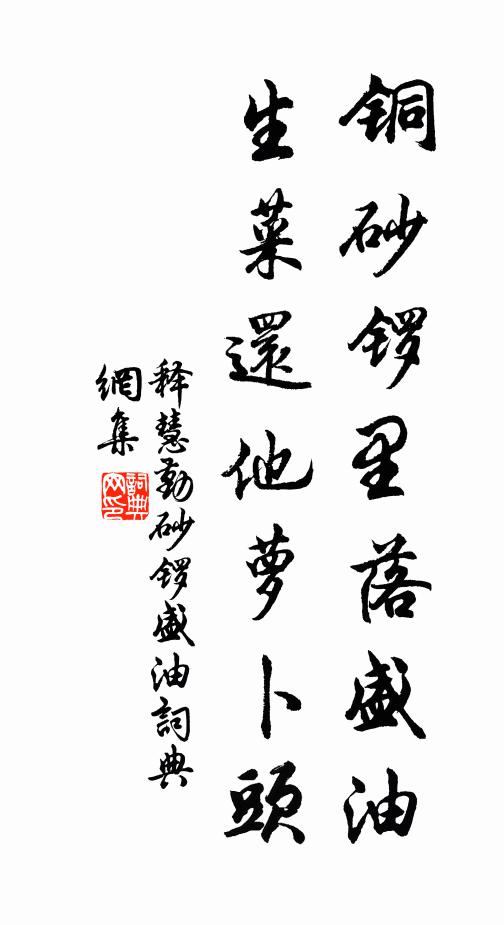 铜砂锣里落盛油
生菜還他萝卜頭
释慧勤砂锣盛油詞典
網集
詞典网印